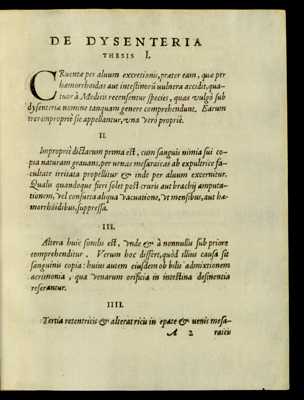 DE DYSENTERIA
THESIS I.
CRuentæ per aluum excretionis, præter eam, quæ per
hæmorrhoidas aut intestinorũ uulnera accidit, qua-
tuor à Medicis recensentur species, quas uulgò sub
dysenteriæ nomine tanquam genere comprehendunt. Earum
tres impropriè sic appellantur, vna verò propriè.
II.
Impropriè dictarum prima est, cum sanguis nimia sui co-
pia naturam grauans, per uenas mesaraicas ab expultrice fa-
cultate irritata propellitur & inde per aluum excernitur.
Qualis quandoque fieri solet post cruris aut brachij amputa-
tionem, vel consueta aliqua vacuatione, vt mensibus, aut hæ-
morrhoidibus, suppressa.
III.
Altera huic similis est, vnde & à nonnullis sub priore
comprehenditur. Verum hoc differt, quòd illius causa sit
sanguinis copia: huius autem eiusdem ob bilis admixtionem
acrimonia, qua venarum orificia in intestina desinentia
reserantur.
IIII.
Tertia retentricis & alteratricis in epate & uenis mesa-
A 2 raicis